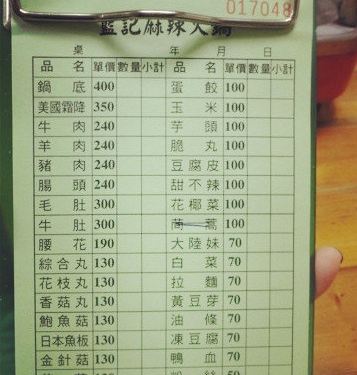 017048
藍記麻辣火鍋
桌 年 月 日
品名 單價 數量 小計 品名 單價 數量 小計
鍋底 400 蛋餃 100
美國霜降 350 玉米 100
牛肉 240 芋頭 100
羊肉 240 脆丸 100
豬肉 240 豆腐皮 100
腸頭 240 甜不辣 100
毛肚 300 花椰菜 100
牛肚 300 茼蒿 100
腰花 190 大陸妹 70
綜合丸 130 白菜 70
花枝丸 130 拉麵 70
香菇丸 130 黃豆芽 70
鮑魚菇 130 油條 70
日本魚板 130 凍豆腐 70
金針菇 130 鴨血 70
50